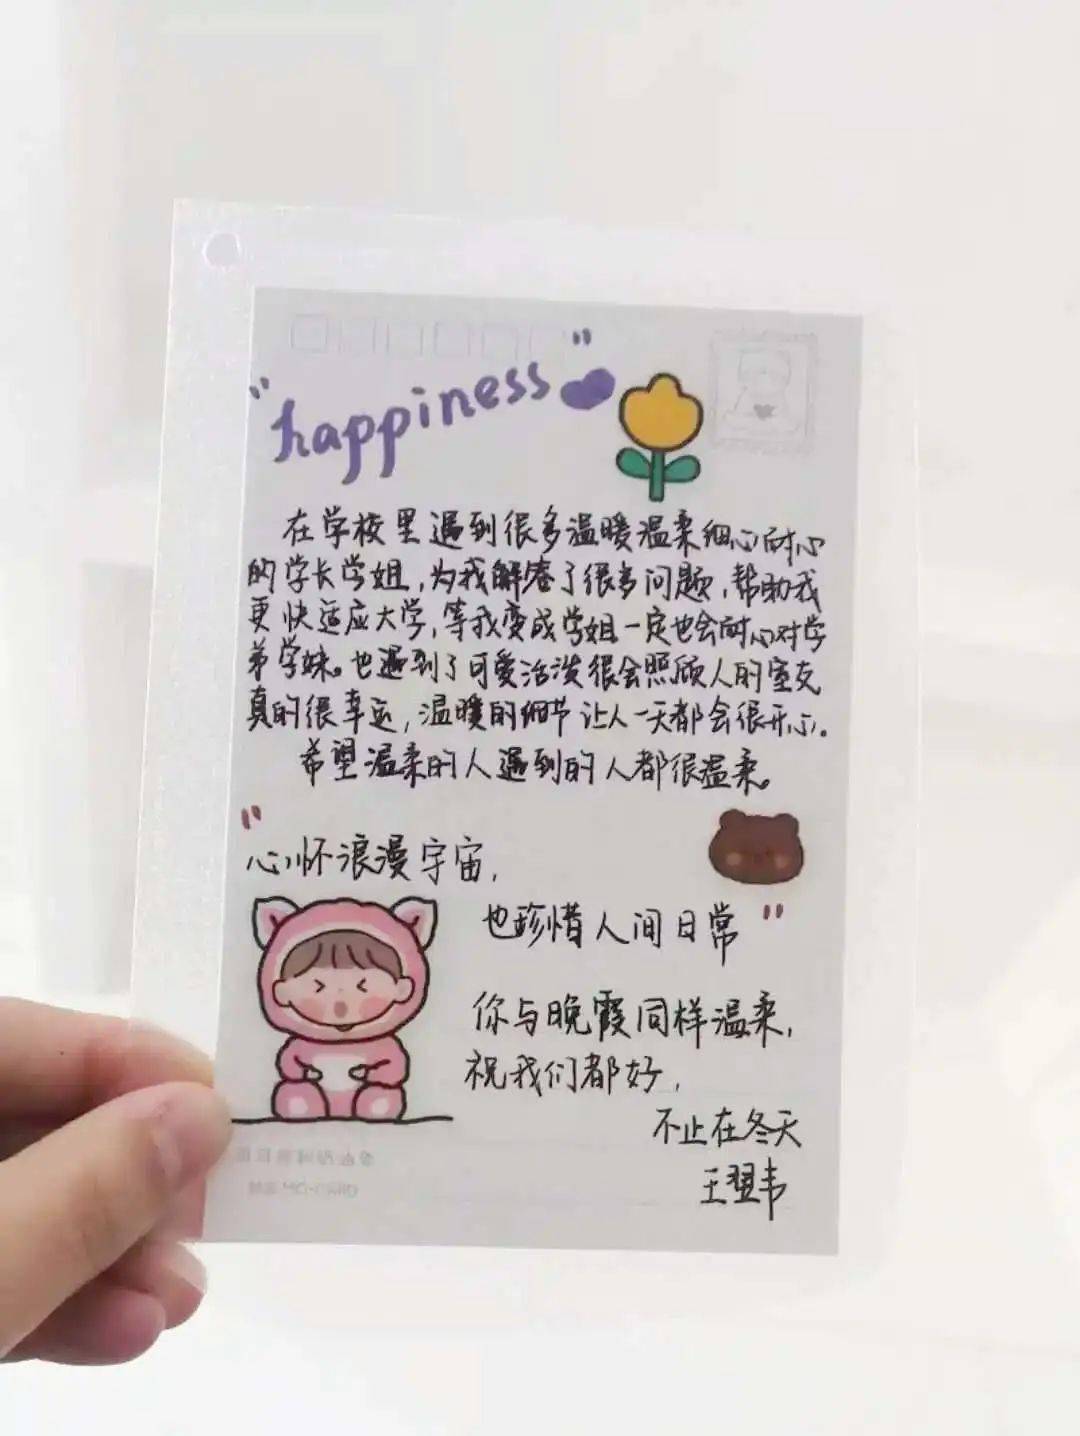 "happiness"
在学校里遇到很多温暖温柔细心耐心
的学长学姐,为我解答了很多问题,帮助我
更快适应大学,等我变成学姐一定也会耐心对学
弟学妹。也遇到了可爱活泼很会照顾人的室友
真的很幸运,温暖的细节让人一天都会很开心。
希望温柔的人遇到的人都很温柔。
"心怀浪漫宇宙,
也珍惜人间日常"
你与晚霞同样温柔,
祝我们都好,
不止在冬天
王翌韦